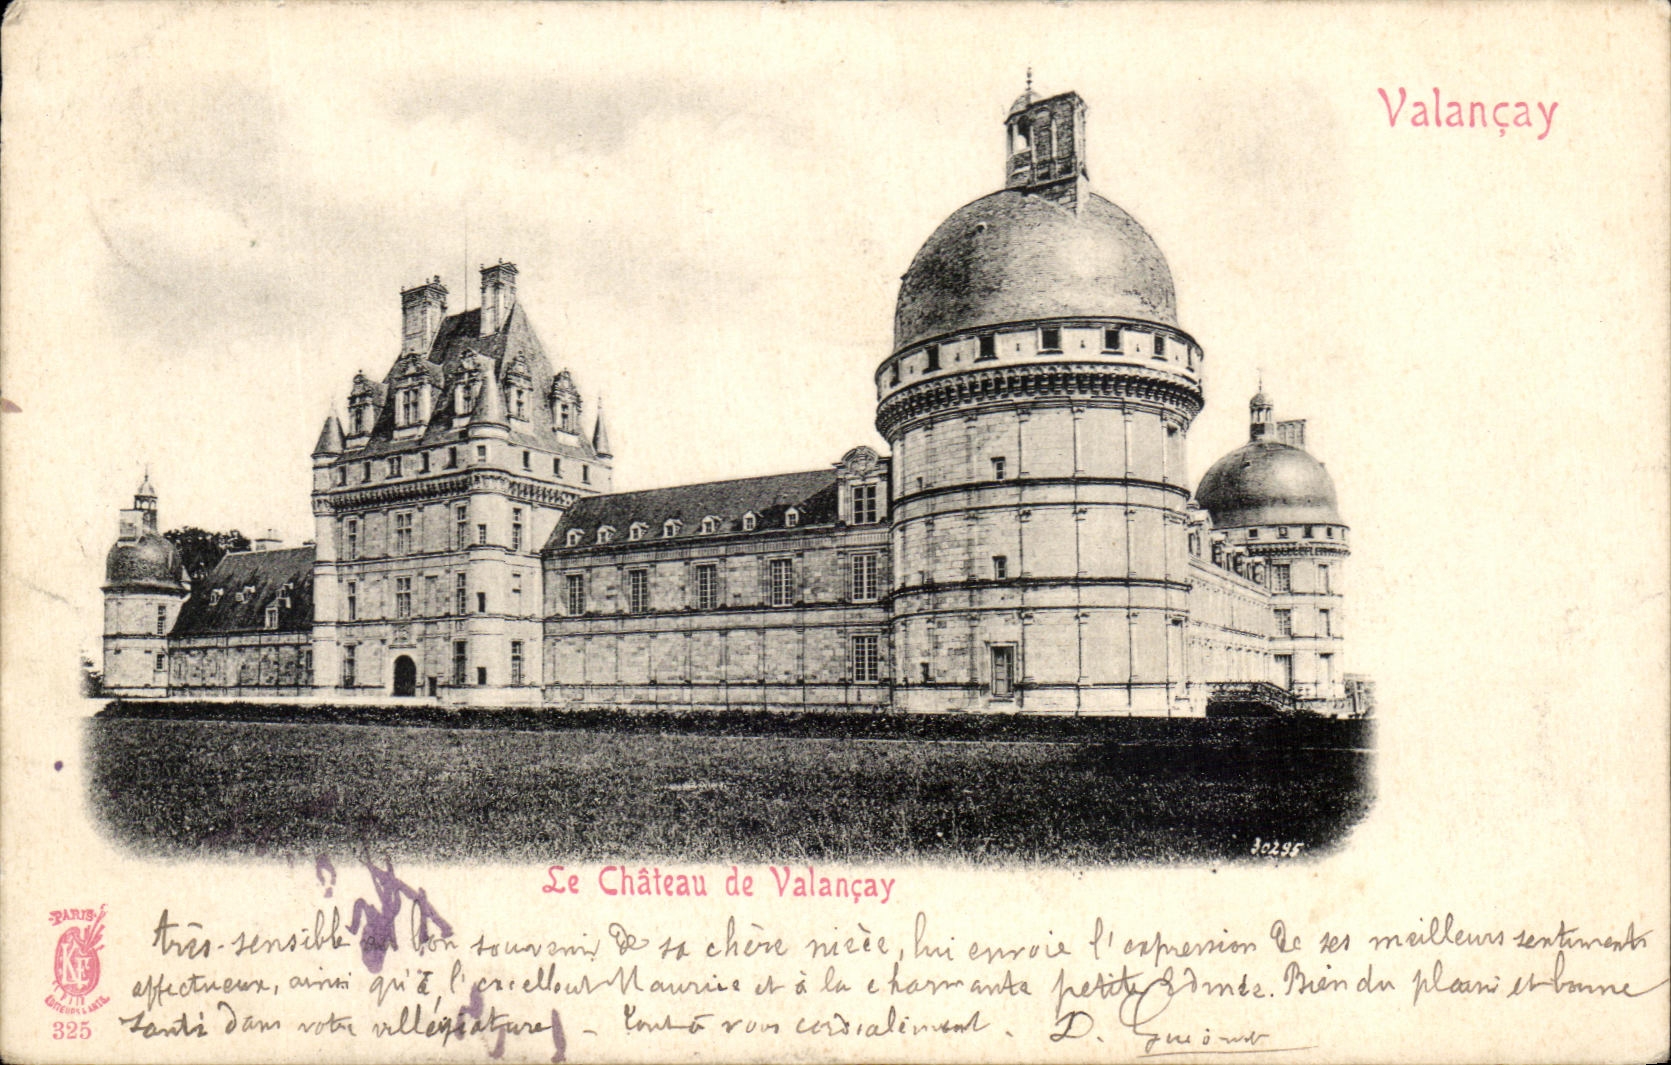 Valançay
30295
Le Château de Valançay
PARIS
KF
EDITEURS D'ART
325
très-sensible au bon souvenir de sa chère nièce, lui envoie l'expression de ses meilleurs sentiments
affectueux, ainsi qu'à l'excellent Maurice et à la charmante petite Edmée. Bien du plaisir et bonne
santé dans votre villégiature – Tout à vous cordialement. D.